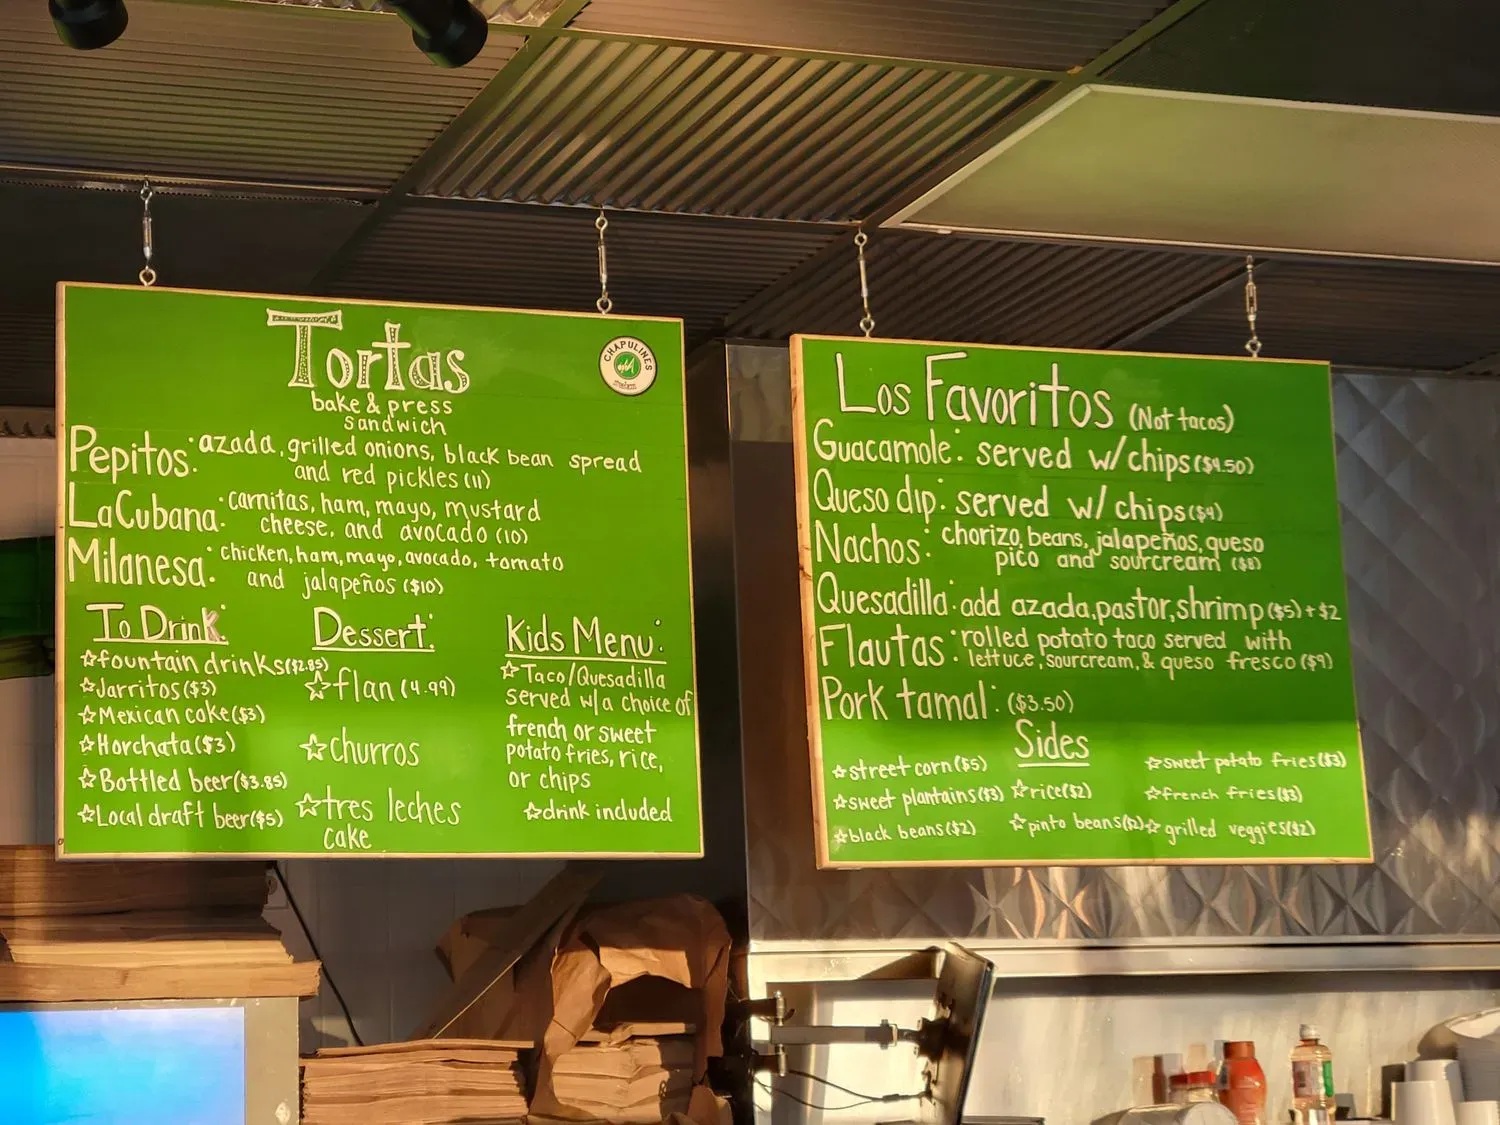 Tortas
bake & press
sandwich
CHAPULINES
Pepitos: azada, grilled onions, black bean spread
and red pickles (11)
La Cubana: carnitas, ham, mayo, mustard
cheese, and avocado (10)
Milanesa: chicken, ham, mayo, avocado, tomato
and jalapeños ($10)
To Drink:
☆fountain drinks($2.85)
☆Jarritos($3)
☆Mexican coke($3)
☆Horchata($3)
☆Bottled beer($3.85)
☆Local draft beer($5)
Dessert:
☆flan (4.99)
☆churros
☆tres leches
cake
Kids Menu:
☆Taco/Quesadilla
served w/a choice of
french or sweet
potato fries, rice,
or chips
☆drink included
Los Favoritos (Not tacos)
Guacamole: served w/chips($4.50)
Queso dip: served w/ chips($4)
Nachos: chorizo, beans, jalapeños, queso
pico and sourcream ($8)
Quesadilla: add azada, pastor, shrimp ($5) + $2
Flautas: rolled potato taco served with
lettuce, sourcream, & queso fresco ($9)
Pork tamal: ($3.50)
Sides
☆street corn($5)
☆sweet plantains($3)
☆black beans($2)
☆rice($2)
☆pinto beans($2)
☆sweet potato fries($3)
☆french fries($3)
☆grilled veggies($2)